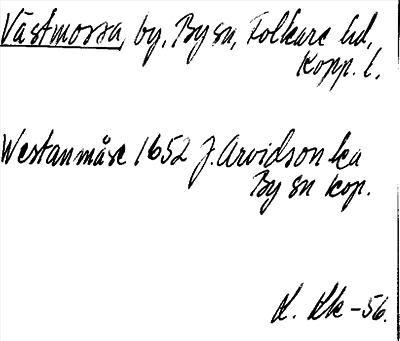 Västmossa, by, By sn, Folkare hd,
Kopp. l.
Westanmåse 1652 J. Arvidson ka
By sn Kop.